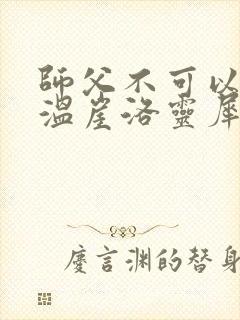 師父不可以
溫崖洛靈犀
慶言渊的替身